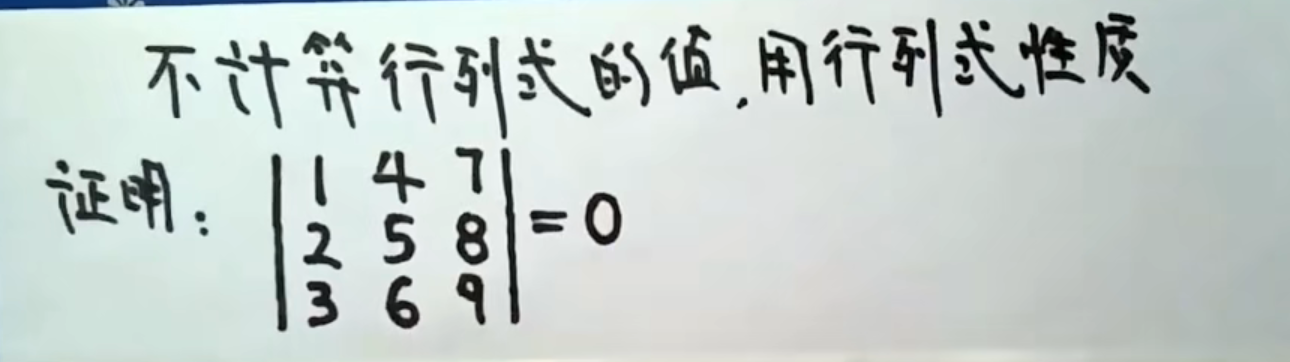 不计算行列式的值,用行列式性质
证明: | 1 4 7 |
| 2 5 8 | = 0
| 3 6 9 |